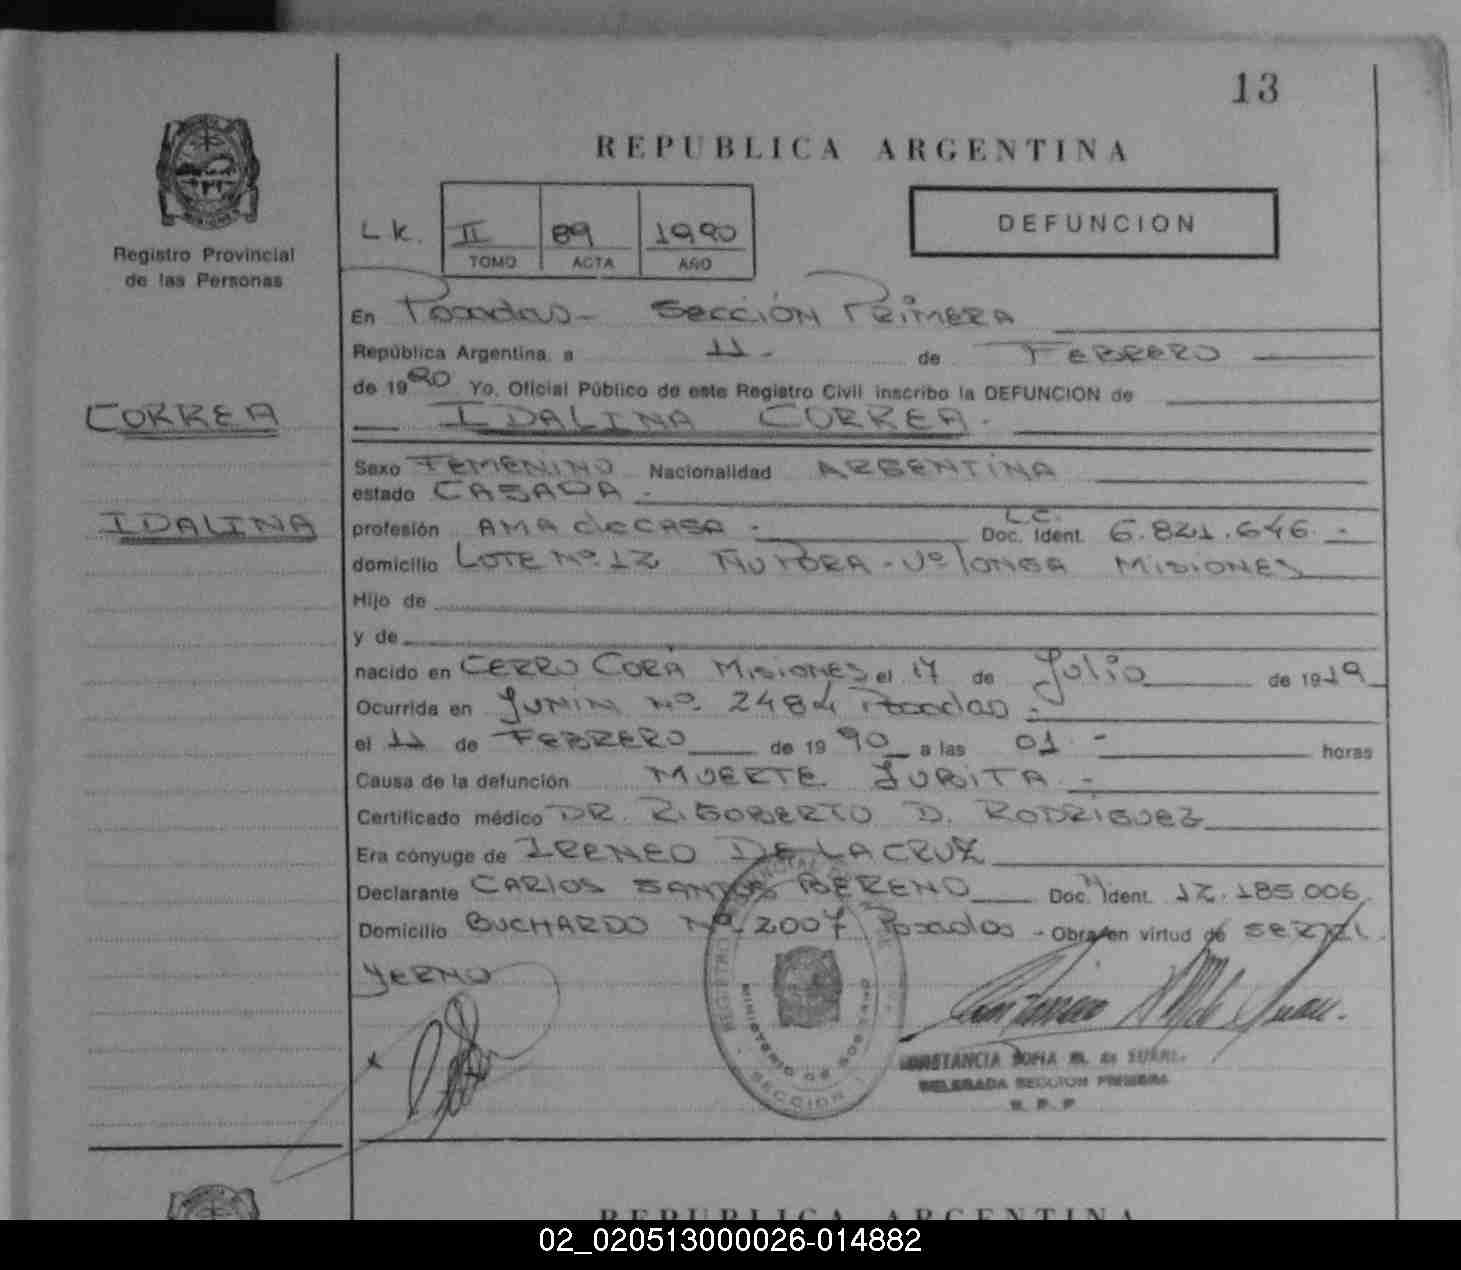 13
REPUBLICA ARGENTINA
Registro Provincial
de las Personas
Lk. II 89 1990
TOMO ACTA AÑO
DEFUNCION
En Posadas - Sección Primera
República Argentina, a 11 - de FEBRERO
de 1990 Yo, Oficial Público de este Registro Civil inscribo la DEFUNCION de
IDALINA CORREA.
CORREA
IDALINA
Sexo FEMENINO Nacionalidad ARGENTINA
estado CASADA -
profesión AMA de CASA - L.C. Doc. Ident. 6.821.646. -
domicilio LOTE Nº 12 MISIONES
Hijo de
y de
nacido en CERRO CORÁ MISIONES el 17 de Julio de 1919
Ocurrida en JUNIN Nº 2484 Posadas -
el 11 de FEBRERO de 1990 a las 01 - horas
Causa de la defunción MUERTE SUBITA -
Certificado médico DR. RIGOBERTO D. RODRIGUEZ
Era cónyuge de IRENEO DE LA CRUZ
Declarante CARLOS SANTOS BERENO Doc. Ident. 12.185.006.
Domicilio BUCHARDO Nº 2007 Posadas - Obra en virtud de SER EL
YERNO
MINISTERIO DE GOBIERNO
SECCION
CONSTANCIA SOFIA M. de
DELEGADA SECCION PRIMERA
R. P. P
REPUBLICA ARGENTINA
02_020513000026-014882